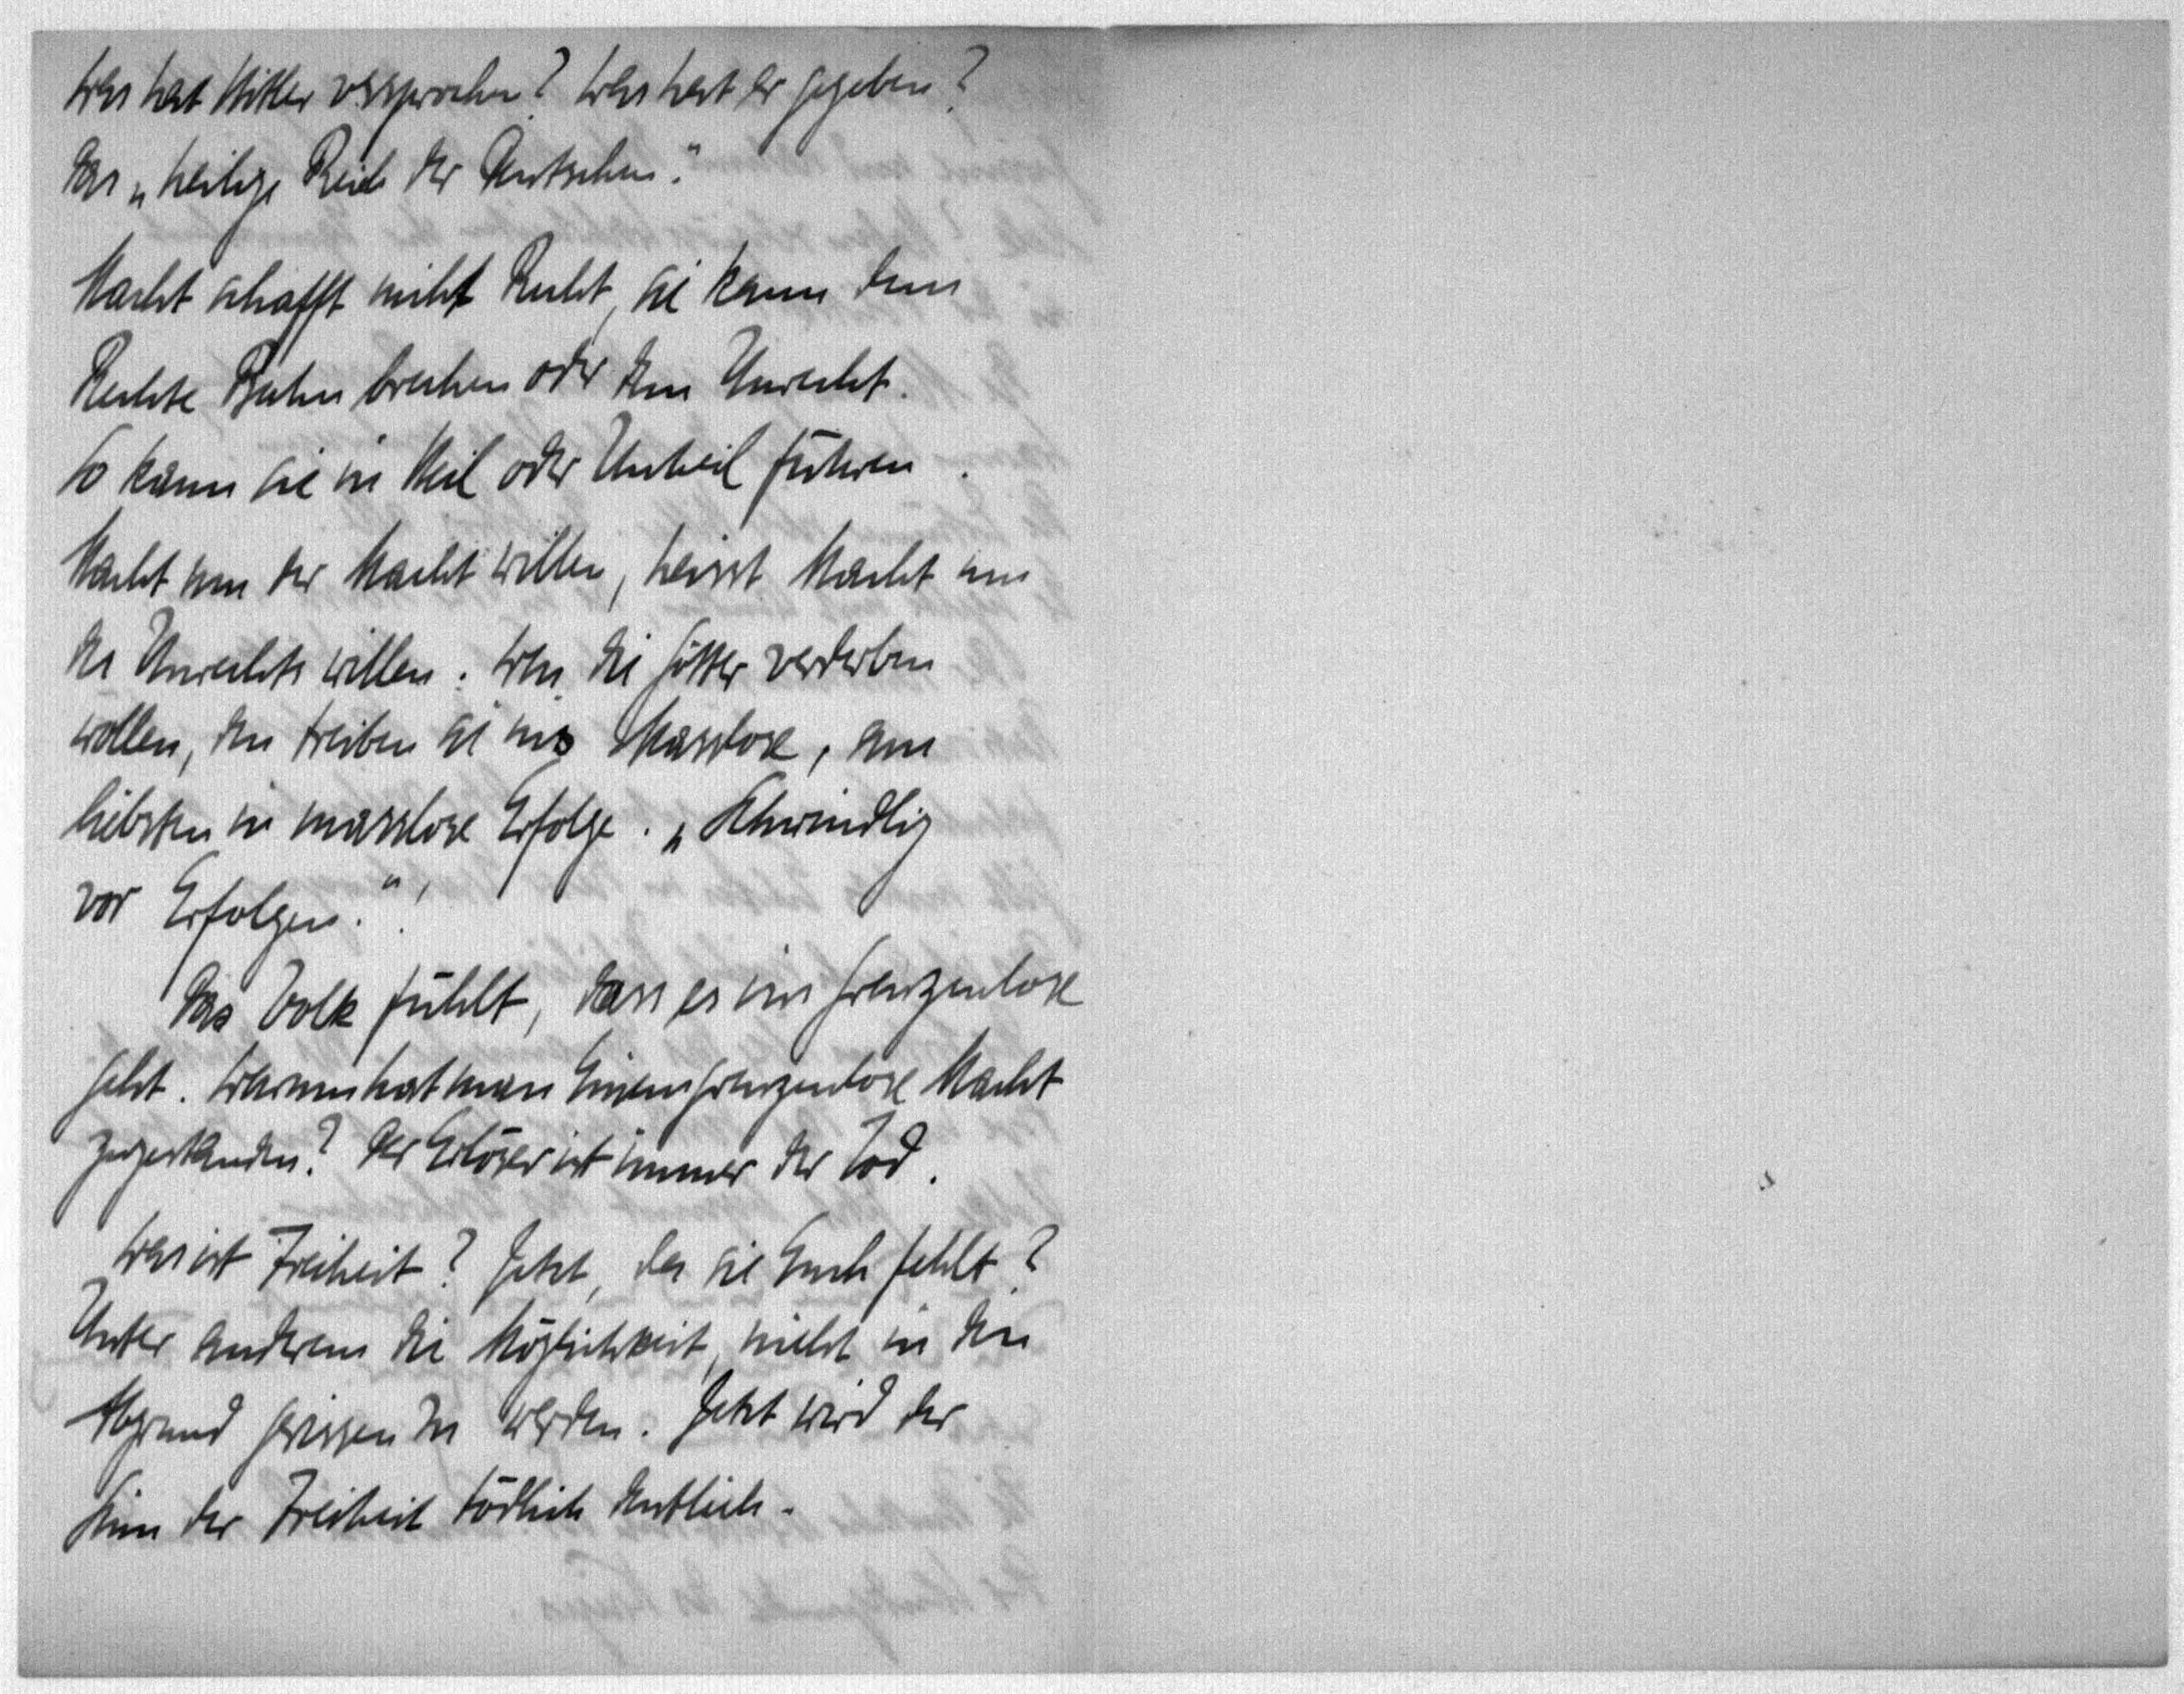 Was hat Hitler versprochen? Was hat er gegeben?
Das „heilige Reich der Deutschen."
Macht schafft nicht Recht, sie kann dem
Rechte Bahn brechen oder dem Unrecht.
So kann sie in Heil oder Unheil führen.
Macht um der Macht willen, heisst Macht um
des Unrechts willen. Wen die Götter verderben
wollen, den treiben sie ins Masslose, am
liebsten in masslose Erfolge. „Schwindlig
vor Erfolgen."!
Das Volk fühlt, dass es ins Grenzenlose
geht. Warum hat man Einem grenzenlose Macht
zugestanden? Der Erlöser ist immer der Tod.
Was ist Freiheit? Jetzt, da sie Euch fehlt?
Unter anderem die Möglichkeit, nicht in den
Abgrund gerissen zu werden. Jetzt wird der
Sinn der Freiheit tödlich deutlich.